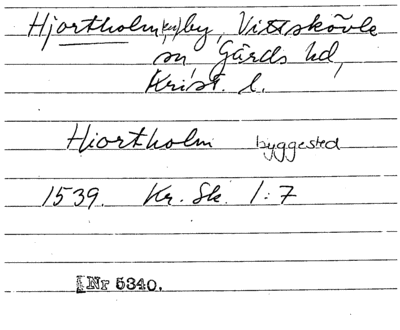 Hjortholm(s)by, Vittskövle
sn, Gärds hd,
Krist. l.
Hiortholm byggested
1539. Kr. Sk. 1:7
Nr 5340.